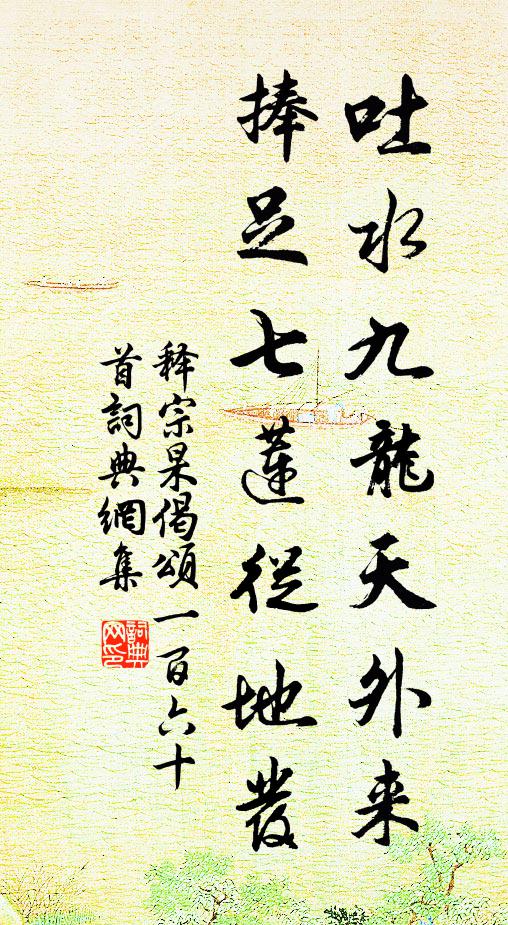 吐水九龍天外来
捧足七蓮從地發
释宗杲偈頌一百六十
首詞典網集
詞典
网印